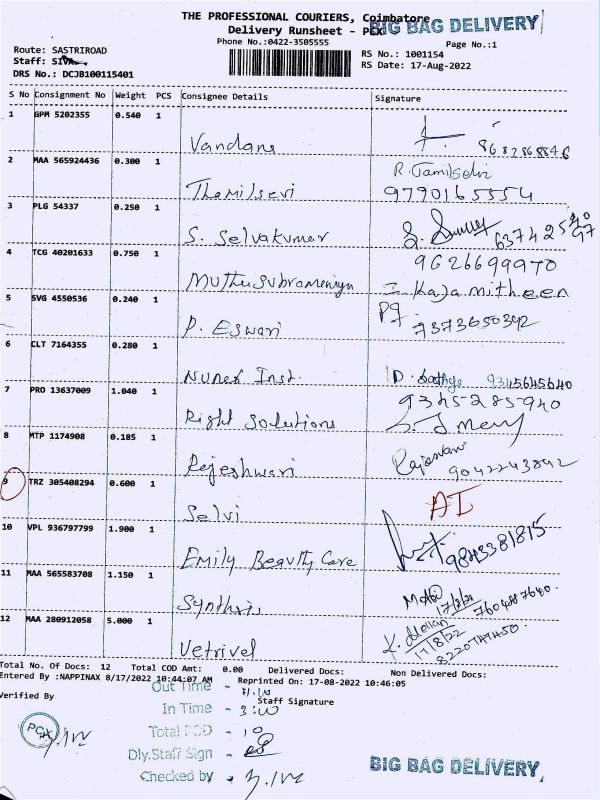 THE PROFESSIONAL COURIERS, Coimbatore
BIG BAG DELIVERY
Delivery Runsheet - PCX
Phone No.:0422-3505555
Page No.:1
Route: SASTRIROAD
RS No.: 1001154
Staff:
RS Date: 17-Aug-2022
DRS No.: DCJB100115401
S No Consignment No Weight PCS Consignee Details Signature
1 GPM 5202355 0.540 1
Vandana 8682868846
2 MAA 565924436 0.300 1 R. Tamilselvi
Thamilselvi 9790165554
3 PLG 54337 0.250 1
S. Selvakumar
4 TCG 40201633 0.750 1 9626699970
Muthusubramaniyn I. Kaja mitheen
5 SVG 4550536 0.240 1
P. Eswari 7373650392
6 CLT 7164355 0.280 1
Nunex Inst. D. Sathya 9345645640
7 PRO 13637009 1.040 1 9345-285-940
Right Solutions
8 MTP 1174908 0.185 1
Rajeshwari 9042243842
9 TRZ 305408294 0.600 1
Selvi
10 VPL 936797799 1.900 1
Emily Beauty Care 9843381815
11 MAA 565583708 1.150 1
17/8/22
12 MAA 280912058 5.000 1
Vetrivel 17/8/22
Total No. Of Docs: 12 Total COD Amt: 0.00 Delivered Docs: Non Delivered Docs:
Entered By :NAPPINAX 8/17/2022 10:44:07 AM Reprinted On: 17-08-2022 10:46:05
Out Time -
Verified By Staff Signature
In Time - 3:00
PCX
Total POD - 10
Dly.Staff Sign -
Checked by -
BIG BAG DELIVERY